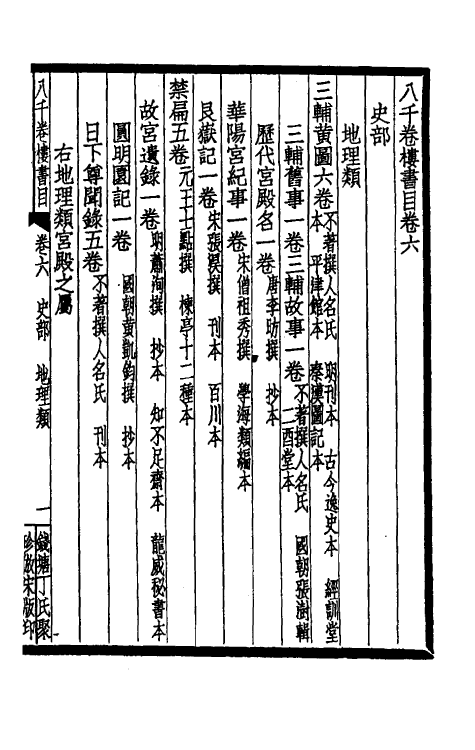 八千卷樓書目卷六
史部
地理類
三輔黃圖六卷不著撰人名氏　明刊本　古今逸史本　經訓堂
本　平津館本　秦漢圖記本
三輔舊事一卷三輔故事一卷不著撰人名氏　國朝張澍輯
二酉堂本
歷代宮殿名一卷唐李昉撰　抄本
華陽宮紀事一卷宋僧祖秀撰　學海類編本
艮嶽記一卷宋張淏撰　刊本　百川本
禁扁五卷元王士點撰　楝亭十二種本
故宮遺錄一卷明蕭洵撰　抄本　知不足齋本　龍威秘書本
圓明園記一卷國朝黃凱鈞撰　抄本
日下尊聞錄五卷不著撰人名氏　刊本
右地理類宮殿之屬
八千卷樓書目　卷六　史部　地理類　一　錢塘丁氏聚
珍倣宋版印